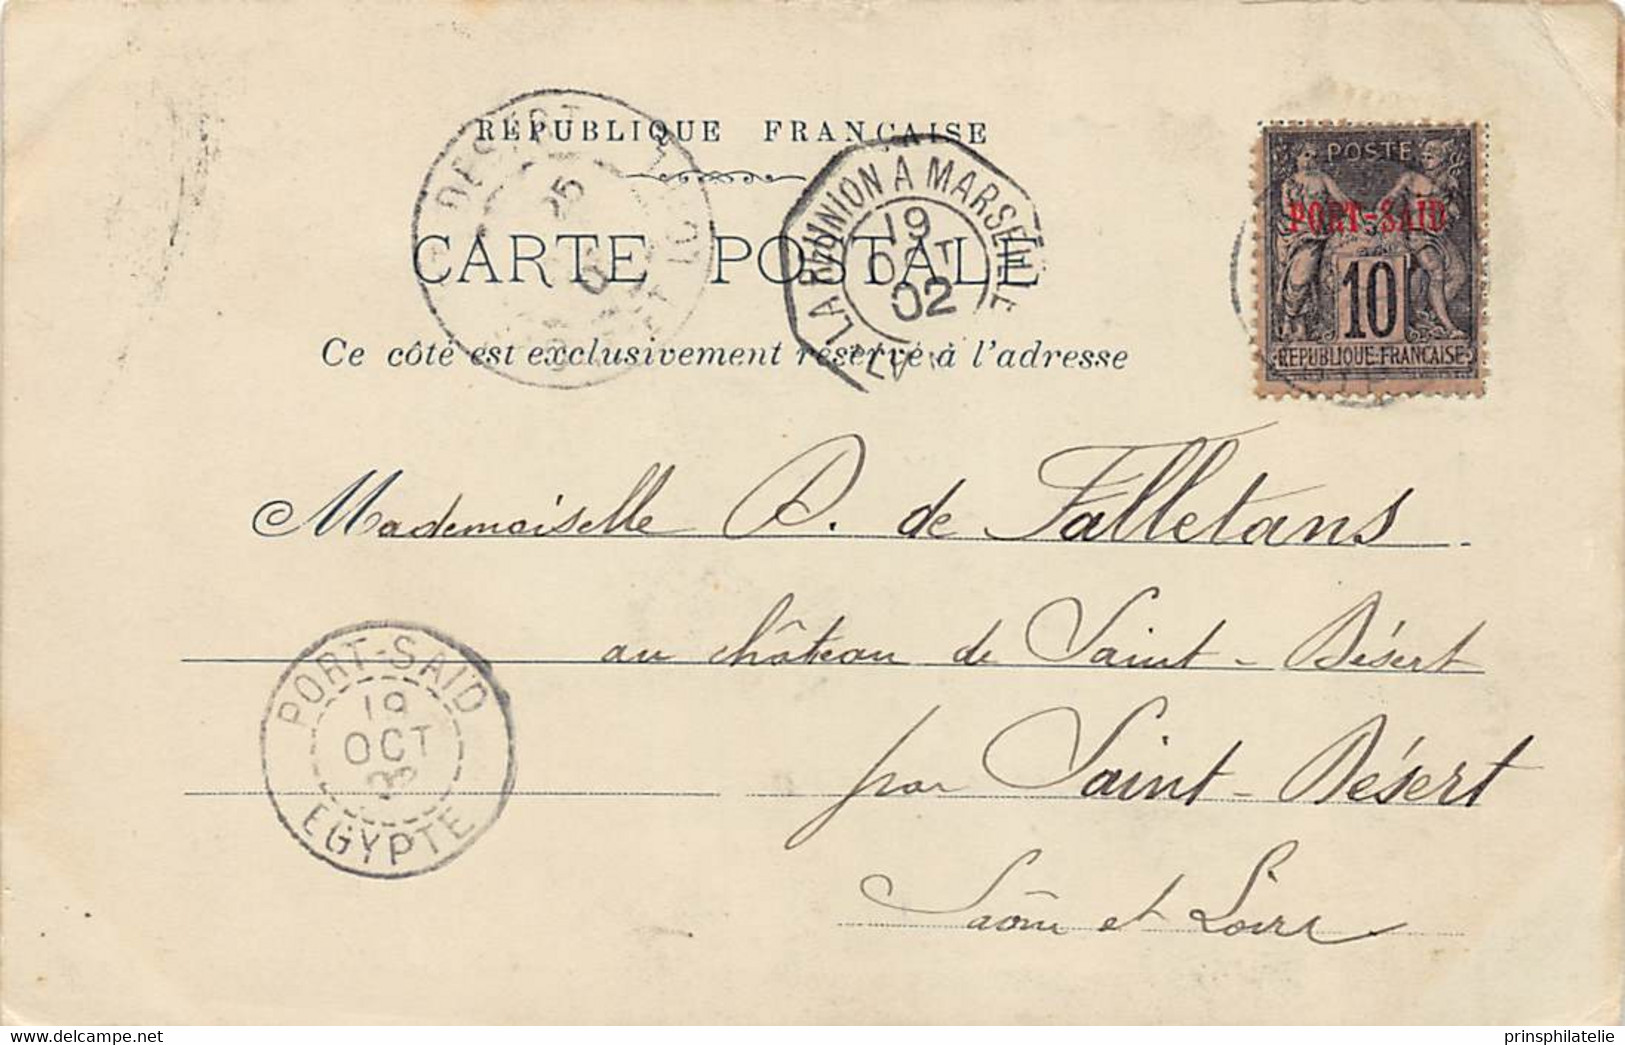 RÉPUBLIQUE FRANÇAISE
CARTE POSTALE
Ce côté est exclusivement réservé à l'adresse
DESERT
25
LA RÉUNION A MARSEILLE
19
OCT
02
POSTE
PORT-SAID
10
REPUBLIQUE FRANÇAISE
Mademoiselle D. de Falletans
au château de Saint-Désert
par Saint-Désert
Saône et Loire
PORT-SAID
19
OCT
02
EGYPTE
www.delcampe.net
prinsphilatelie